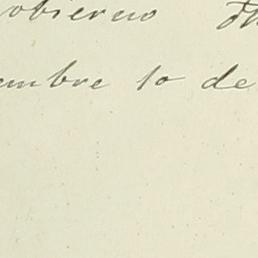 obierno
mbre 10 de